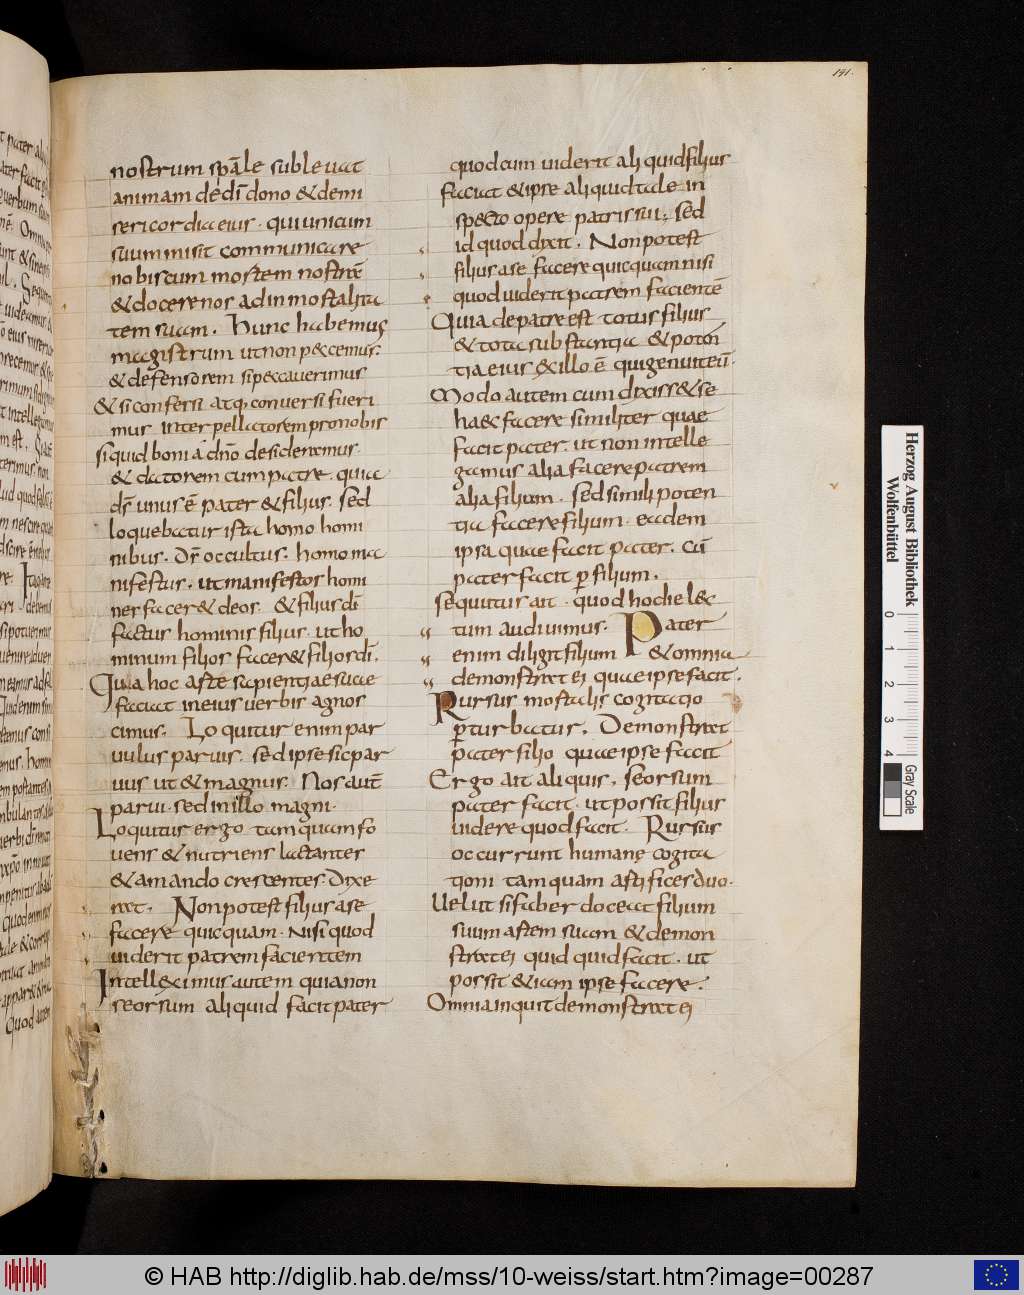 141.
nostrum spāle subleuat
animam dedī dono & demi
sericordia eius · qui unicum
suum misit communicare
nobiscum mortem nostrā
& docere nos ad inmortalita
tem suam . Hunc habemus
magistrum ut non peccemus.
& defensorem si peccauerimus
& si confessi atq; conuersi fueri
mus interpellatorem pro nobis
si quid boni a dn̄o desideremus.
& datorem cum patre . quia
ds̄ unus ē pater & filius . sed
loquebatur ista homo homi
nibus . Ds̄ occultus . homo ma
nifestus . ut manifestos homi
nes facer& deos . & filius dī
factus hominis filius . ut ho
minum filios facer& filios dī .
Quia hoc arte sapientiae suae
faciat in eius uerbis agnos
cimus . Loquitur enim par
uulus paruis . sed ipse sic par
uus ut & magnus . Nos autē
parui . sed in illo magni .
Loquitur ergo tamquam fo
uens & nutriens lactantes
& amando crescentes . Dixe
rat . Non potest filius a se
facere quicquam . Nisi quod
uiderit patrem facientem
Intelleximus autem quia non
seorsum aliquid facit pater
quod cum uiderit aliquid filius
faciat & ipse aliquid tale in
spᛖcto opere patris sui ; sed
id quod dixit . Non potest
filius a se facere quicquam nisi
quod uiderit patrem facientē
Quia de patre est totus filius
& tota substantia & poten
tia eius ex illo ē qui genuit eū .
Modo autem cum dixiss& se
haec facere similiter quae
facit pater . ut non intelle
gamus alia facere patrem
alia filium . sed simili poten
tia facere filium . eadem
ipsa quae facit pater . cū
pater facit p̄ filium .
sequitur ait . quod hodie lec
tum audiuimus . Pater
enim diligit filium & omnia
demonstrat ei quae ipse facit .
Rursus mortalis cogitatio
p̄turbatur . Demonstrat
pater filio quae ipse facit
Ergo ait aliquis . seorsum
pater facit . ut possit filius
uidere quod facit . Rursus
occurrunt humanę cogita
tioni tamquam artifices duo .
Uelut si faber doceat filium
suum artem suam & demon
strat ei quid quid facit . ut
possit & iam ipse facere .
Omnia inquit demonstrat ei
Herzog August Bibliothek
Wolfenbüttel
0 1 2 3 4
Gray Scale
© HAB http://diglib.hab.de/mss/10-weiss/start.htm?image=00287